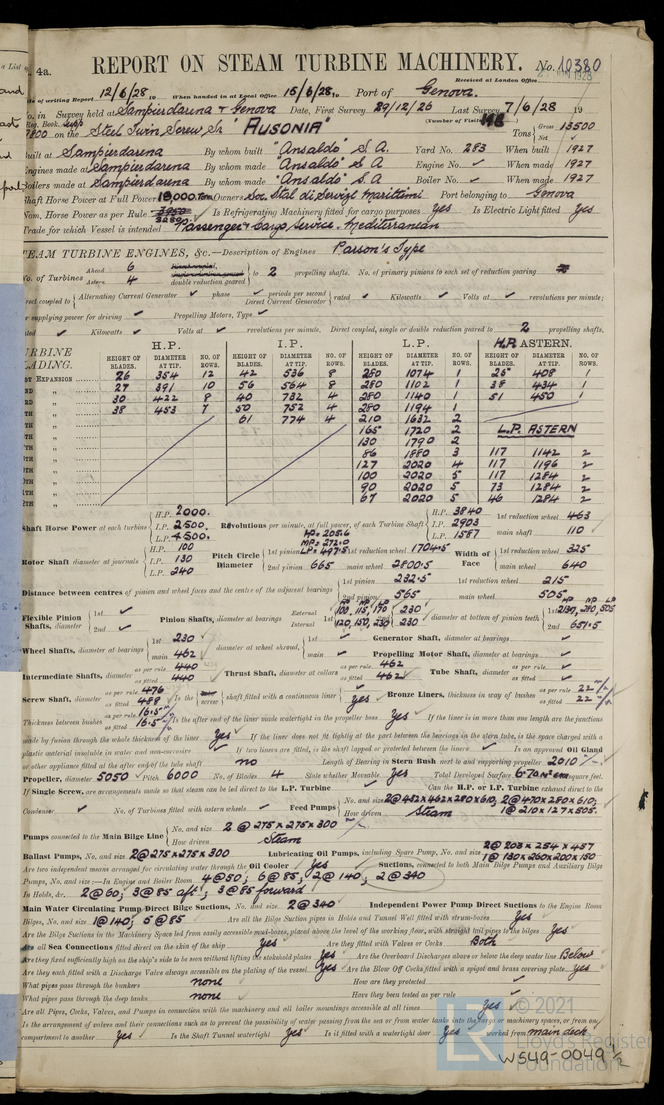 4a.
REPORT ON STEAM TURBINE MACHINERY. No. 10380
Received at London Office
of writing Report 12/6/28 When handed in at Local Office 15/6/28 Port of Genova.
in Survey held at Sampierdarena & Genova Date, First Survey 29/12/26 Last Survey 7/6/28 19
Reg. Book. Supp (Number of Visits
7800 on the Steel Twin Screw Sr "AUSONIA" Tons Gross 13500 Net
Built at Sampierdarena By whom built "Ansaldo" S.A. Yard No. 283 When built 1927
Engines made at Sampierdarena By whom made "Ansaldo" S.A Engine No. ✓ When made 1927
Boilers made at Sampierdarena By whom made "Ansaldo" S.A Boiler No. ✓ When made 1927
Shaft Horse Power at Full Power 18,000 Owners Soc. Ital di Servizi Marittimi Port belonging to Genova
Nom. Horse Power as per Rule Is Refrigerating Machinery fitted for cargo purposes Yes Is Electric Light fitted Yes
Trade for which Vessel is intended Passenger & Cargo Service. Mediterranean
STEAM TURBINE ENGINES, &c.—Description of Engines Parson's Type
No. of Turbines Ahead 6 Astern 4 double reduction geared to 2 propelling shafts. No. of primary pinions to each set of reduction gearing
direct coupled to Alternating Current Generator ✓ phase ✓ periods per second Direct Current Generator rated ✓ Kilowatts ✓ Volts at ✓ revolutions per minute;
for supplying power for driving ✓ Propelling Motors, Type ✓
rated ✓ Kilowatts ✓ Volts at ✓ revolutions per minute. Direct coupled, single or double reduction geared to 2 propelling shafts.
TURBINE BLADING. H.P. I.P. L.P. H.P. ASTERN.
HEIGHT OF BLADES. DIAMETER AT TIP. NO. OF ROWS. HEIGHT OF BLADES. DIAMETER AT TIP. NO. OF ROWS. HEIGHT OF BLADES. DIAMETER AT TIP. NO. OF ROWS. HEIGHT OF BLADES. DIAMETER AT TIP. NO. OF ROWS.
1ST EXPANSION 26 354 12 42 536 8 280 1074 1 25 408
27 391 10 56 564 8 280 1102 1 38 434 1
30 422 8 40 732 4 280 1140 1 51 450 1
38 453 7 50 752 4 280 1194 1
61 774 4 210 1632 2
165 1720 2 L.P. ASTERN
130 1790 2
86 1880 3 117 1142 2
127 2020 4 117 1196 2
100 2020 5 117 1284 2
90 2020 5 73 1284 2
67 2020 5 46 1284 2
Shaft Horse Power at each turbine H.P. 2000. I.P. 2500. L.P. 4500. Revolutions per minute, at full power, of each Turbine Shaft H.P. 3840 I.P. 2903 L.P. 1587 1st reduction wheel 463 main shaft 110
Rotor Shaft diameter at journals H.P. 100 I.P. 130 L.P. 240 Pitch Circle Diameter 1st pinion HP= 205.6 MP= 272.0 LP= 497.5 1st reduction wheel 1704.5 2nd pinion 665 main wheel 2800.5 Width of Face 1st reduction wheel 325 main wheel 640
Distance between centres of pinion and wheel faces and the centre of the adjacent bearings 1st pinion 232.5 2nd pinion 565 1st reduction wheel 215 main wheel 505
Flexible Pinion Shafts, diameter 1st ✓ 2nd ✓ Pinion Shafts, diameter at bearings External 100, 115, 170 Internal 120, 150, 230 230 230 diameter at bottom of pinion teeth 1st 2nd 651.5
Wheel Shafts, diameter at bearings 1st 230 main 462 diameter at wheel shroud, 1st ✓ main ✓ Generator Shaft, diameter at bearings ✓ Propelling Motor Shaft, diameter at bearings ✓
Intermediate Shafts, diameter as per rule 440 as fitted 440 Thrust Shaft, diameter at collars as per rule 462 as fitted 462 Tube Shaft, diameter as per rule ✓ as fitted ✓
Screw Shaft, diameter as per rule 476 as fitted 488 Is the screw shaft fitted with a continuous liner Yes Bronze Liners, thickness in way of bushes as per rule 22 as fitted 22
Thickness between bushes as per rule 16.5 as fitted 16.5 Is the after end of the liner made watertight in the propeller boss Yes If the liner is in more than one length are the junctions
made by fusion through the whole thickness of the liner Yes If the liner does not fit tightly at the part between the bearings in the stern tube, is the space charged with a
plastic material insoluble in water and non-corrosive ✓ If two liners are fitted, is the shaft lapped or protected between the liners ✓ Is an approved Oil Gland
or other appliance fitted at the after end of the tube shaft no Length of Bearing in Stern Bush next to and supporting propeller 2010
Propeller, diameter 5050 Pitch 6000 No. of Blades 4 State whether Movable Yes Total Developed Surface 6.70 square feet.
If Single Screw, are arrangements made so that steam can be led direct to the L.P. Turbine ✓ Can the H.P. or I.P. Turbine exhaust direct to the
Condenser ✓ No. of Turbines fitted with astern wheels ✓ Feed Pumps No. and size 2@482×462×280×610, 2@470×280×610; 1@210×127×505. How driven Steam
Pumps connected to the Main Bilge Line No. and size 2 @ 275×275×300 How driven Steam
Ballast Pumps, No. and size 2@275×275×300 Lubricating Oil Pumps, including Spare Pump, No. and size 2@203×254×457 1@130×260×200×150
Are two independent means arranged for circulating water through the Oil Cooler Yes Suctions, connected to both Main Bilge Pumps and Auxiliary Bilge
Pumps, No. and size:—In Engine and Boiler Room 4@50; 6@85; 2@140; 2@340
In Holds, &c. 2@60; 3@85 aft; 3@85 forward
Main Water Circulating Pump Direct Bilge Suctions, No. and size 2@340 Independent Power Pump Direct Suctions to the Engine Room
Bilges, No. and size 1@140; 5@85 Are all the Bilge Suction pipes in Holds and Tunnel Well fitted with strum-boxes Yes
Are the Bilge Suctions in the Machinery Space led from easily accessible mud-boxes, placed above the level of the working floor, with straight tail pipes to the bilges Yes
Are all Sea Connections fitted direct on the skin of the ship Yes Are they fitted with Valves or Cocks Both
Are they fixed sufficiently high on the ship's side to be seen without lifting the stokehold plates Yes Are the Overboard Discharges above or below the deep water line Below
Are they each fitted with a Discharge Valve always accessible on the plating of the vessel Yes Are the Blow Off Cocks fitted with a spigot and brass covering plate Yes
What pipes pass through the bunkers none How are they protected ✓
What pipes pass through the deep tanks none Have they been tested as per rule ✓
Are all Pipes, Cocks, Valves, and Pumps in connection with the machinery and all boiler mountings accessible at all times Yes
Is the arrangement of valves and their connections such as to prevent the possibility of water passing from the sea or from water tanks into the cargo or machinery spaces, or from one
compartment to another Yes Is the Shaft Tunnel watertight Yes Is it fitted with a watertight door Yes worked from main deck
© 2021
Lloyd's Register
Foundation
W549-0049 1/2